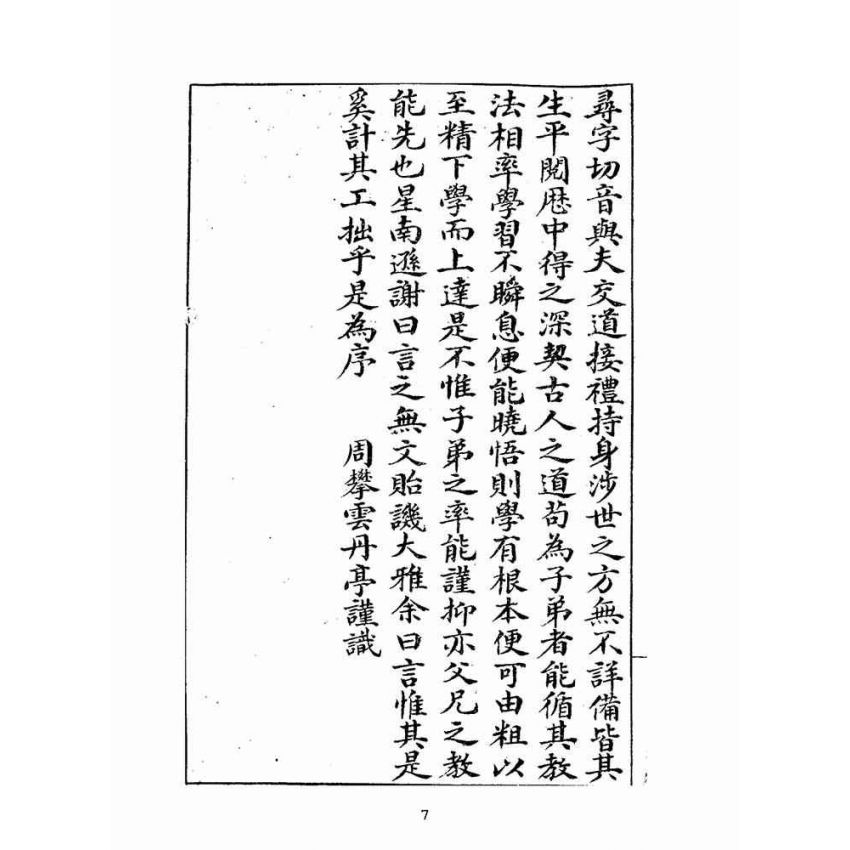 尋字切音與夫交道接禮持身涉世之方無不詳備皆其
生平閱歷中得之深契古人之道苟為子弟者能循其教
法相率學習不瞬息便能曉悟則學有根本便可由粗以
至精下學而上達是不惟子弟之率能謹抑亦父兄之教
能先也星南遜謝曰言之無文貽譏大雅余曰言惟其是
奚計其工拙乎是為序　　周攀雲丹亭謹識
7